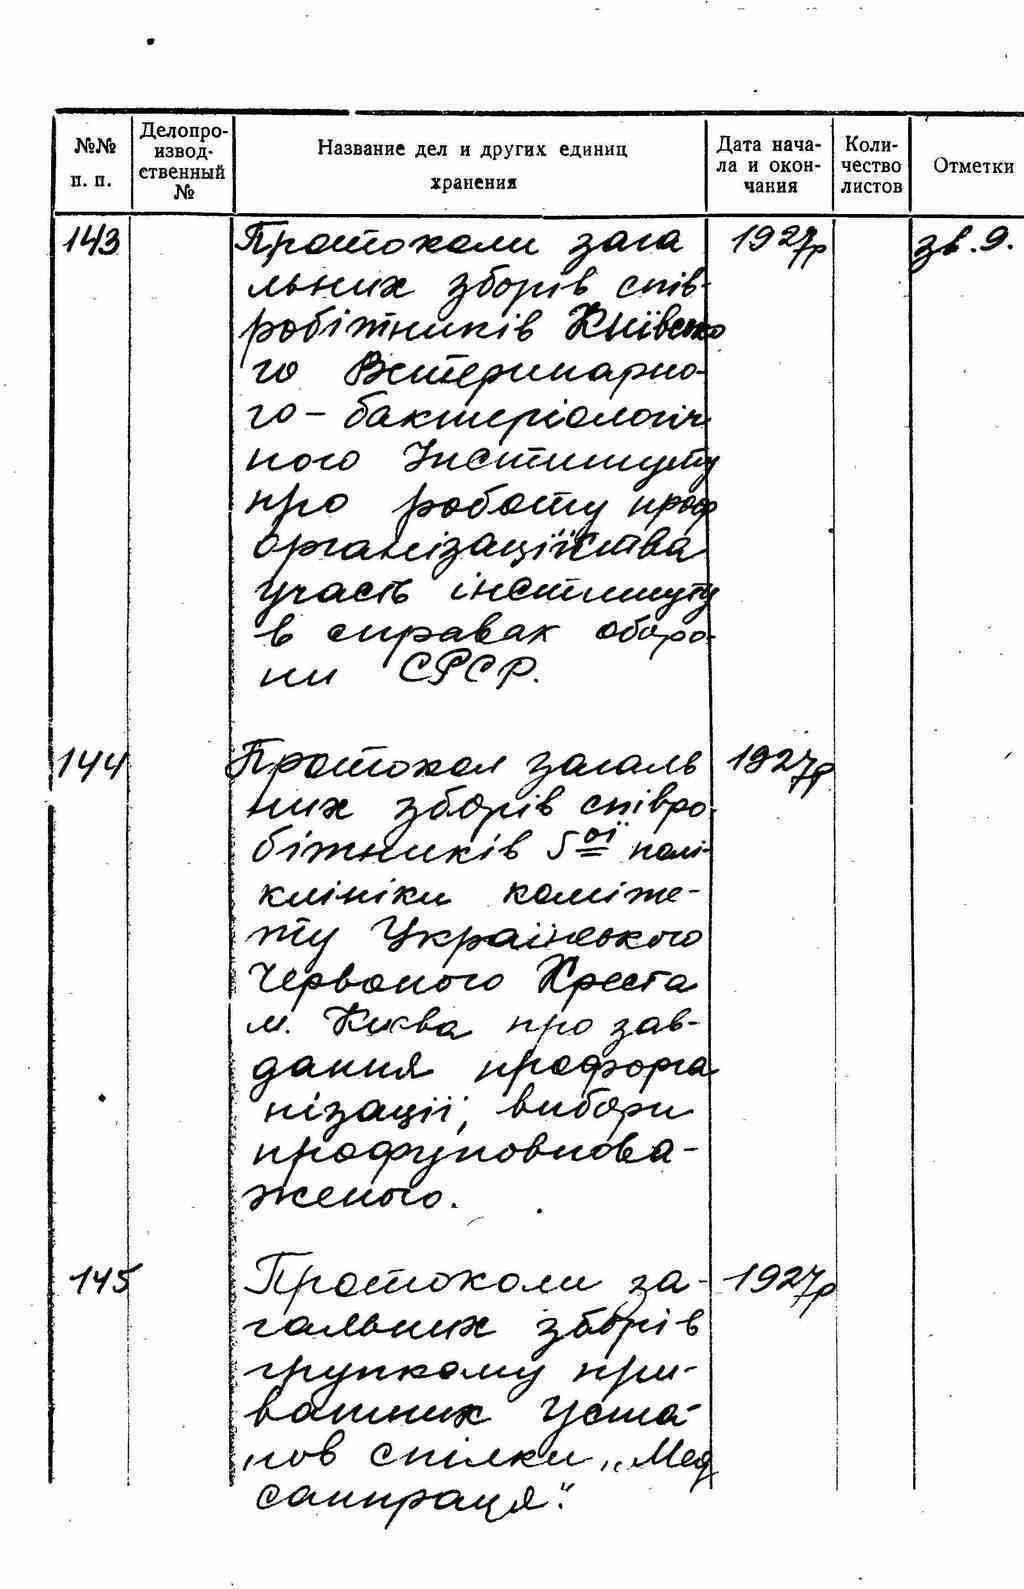 №№ п. п.
Делопроизвод-ственный №
Название дел и других единиц хранения
Дата нача-ла и окон-чания
Коли-чество листов
Отметки
143 Протоколи зага 1927р зв. 9.
льних зборів спів-
робітників Київсько
го Ветеринарно-
го - бактеріологіч
ного Інституту
про роботу проф
організації та
участь інституту
в справах оборо-
ни СРСР.
144 Протокол загаль 1927р
них зборів співро-
бітників 5ої полі-
клініки коміте-
ту Українського
Червоного Хреста
м. Києва про зав-
дання профорга
нізації, вибори
профуповнова-
женого.
145 Протоколи за- 1927р
гальних зборів
групкому при-
ватних уста-
нов спілки „Мед
санпраця".